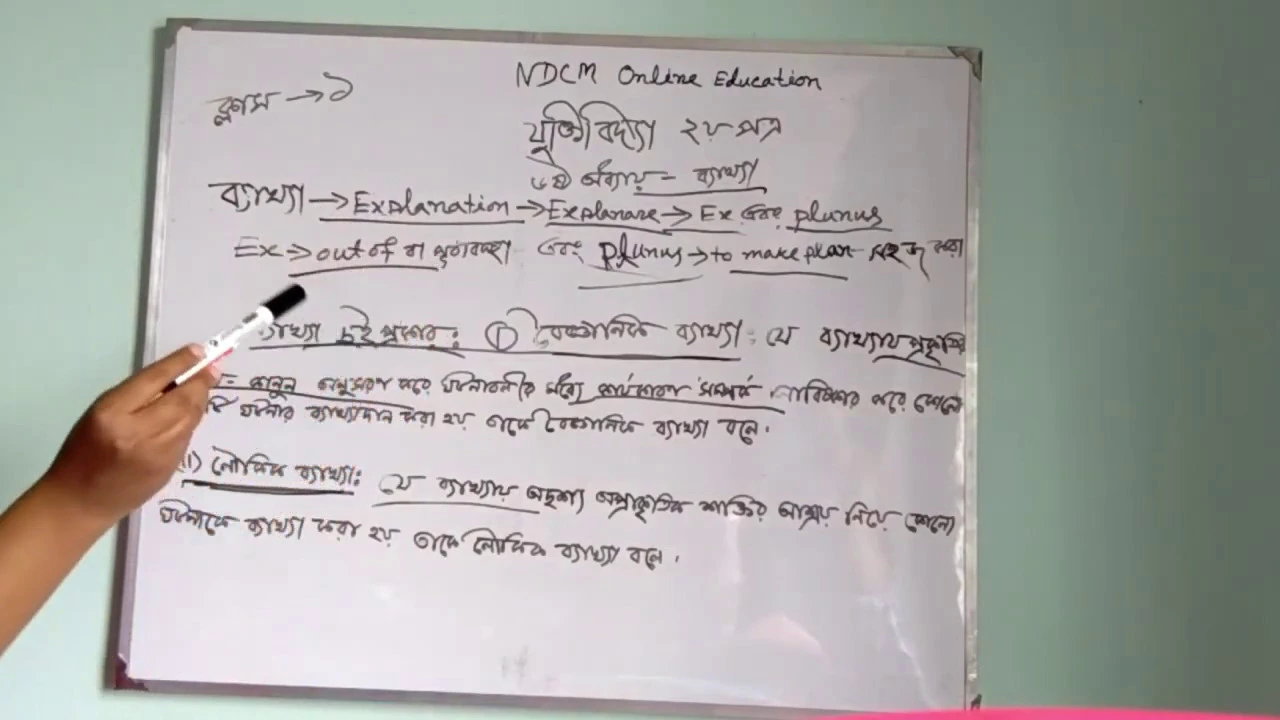 NDCM Online Education
ক্লাস → ১
যুক্তিবিদ্যা ২য় পত্র
৬ষ্ঠ অধ্যায় - ব্যাখ্যা
ব্যাখ্যা → Explanation → Explanare → Ex এবং plunus
Ex → out of বা এবং plunus → to make plan সহজ করা
ব্যাখ্যা দুই প্রকার: ① বৈজ্ঞানিক ব্যাখ্যা: যে ব্যাখ্যায় প্রকৃতির
কানুন অনুসরণ করে ঘটনাবলীর মধ্যে কার্যকারণ সম্পর্ক আবিষ্কার করে কোনো
ঘটনার ব্যাখ্যাদান করা হয় তাকে বৈজ্ঞানিক ব্যাখ্যা বলে।
লৌকিক ব্যাখ্যা: যে ব্যাখ্যায় অদৃশ্য অপ্রাকৃতিক শক্তির আশ্রয় নিয়ে কোনো
ঘটনাকে ব্যাখ্যা করা হয় তাকে লৌকিক ব্যাখ্যা বলে।